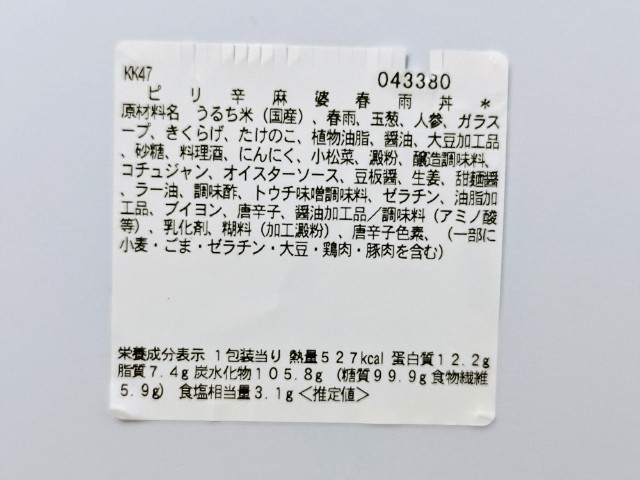 KK47
043380
ピリ辛麻婆春雨丼*
原材料名 うるち米(国産)、春雨、玉葱、人参、ガラス
ープ、きくらげ、たけのこ、植物油脂、醤油、大豆加工品
、砂糖、料理酒、にんにく、小松菜、澱粉、醸造調味料、
コチュジャン、オイスターソース、豆板醤、生姜、甜麺醤
、ラー油、調味酢、トウチ味噌調味料、ゼラチン、油脂加
工品、ブイヨン、唐辛子、醤油加工品/調味料(アミノ酸
等)、乳化剤、糊料(加工澱粉)、唐辛子色素、(一部に
小麦・ごま・ゼラチン・大豆・鶏肉・豚肉を含む)
栄養成分表示 1包装当り 熱量527kcal 蛋白質12.2g
脂質7.4g 炭水化物105.8g (糖質99.9g 食物繊維
5.9g) 食塩相当量3.1g<推定値>